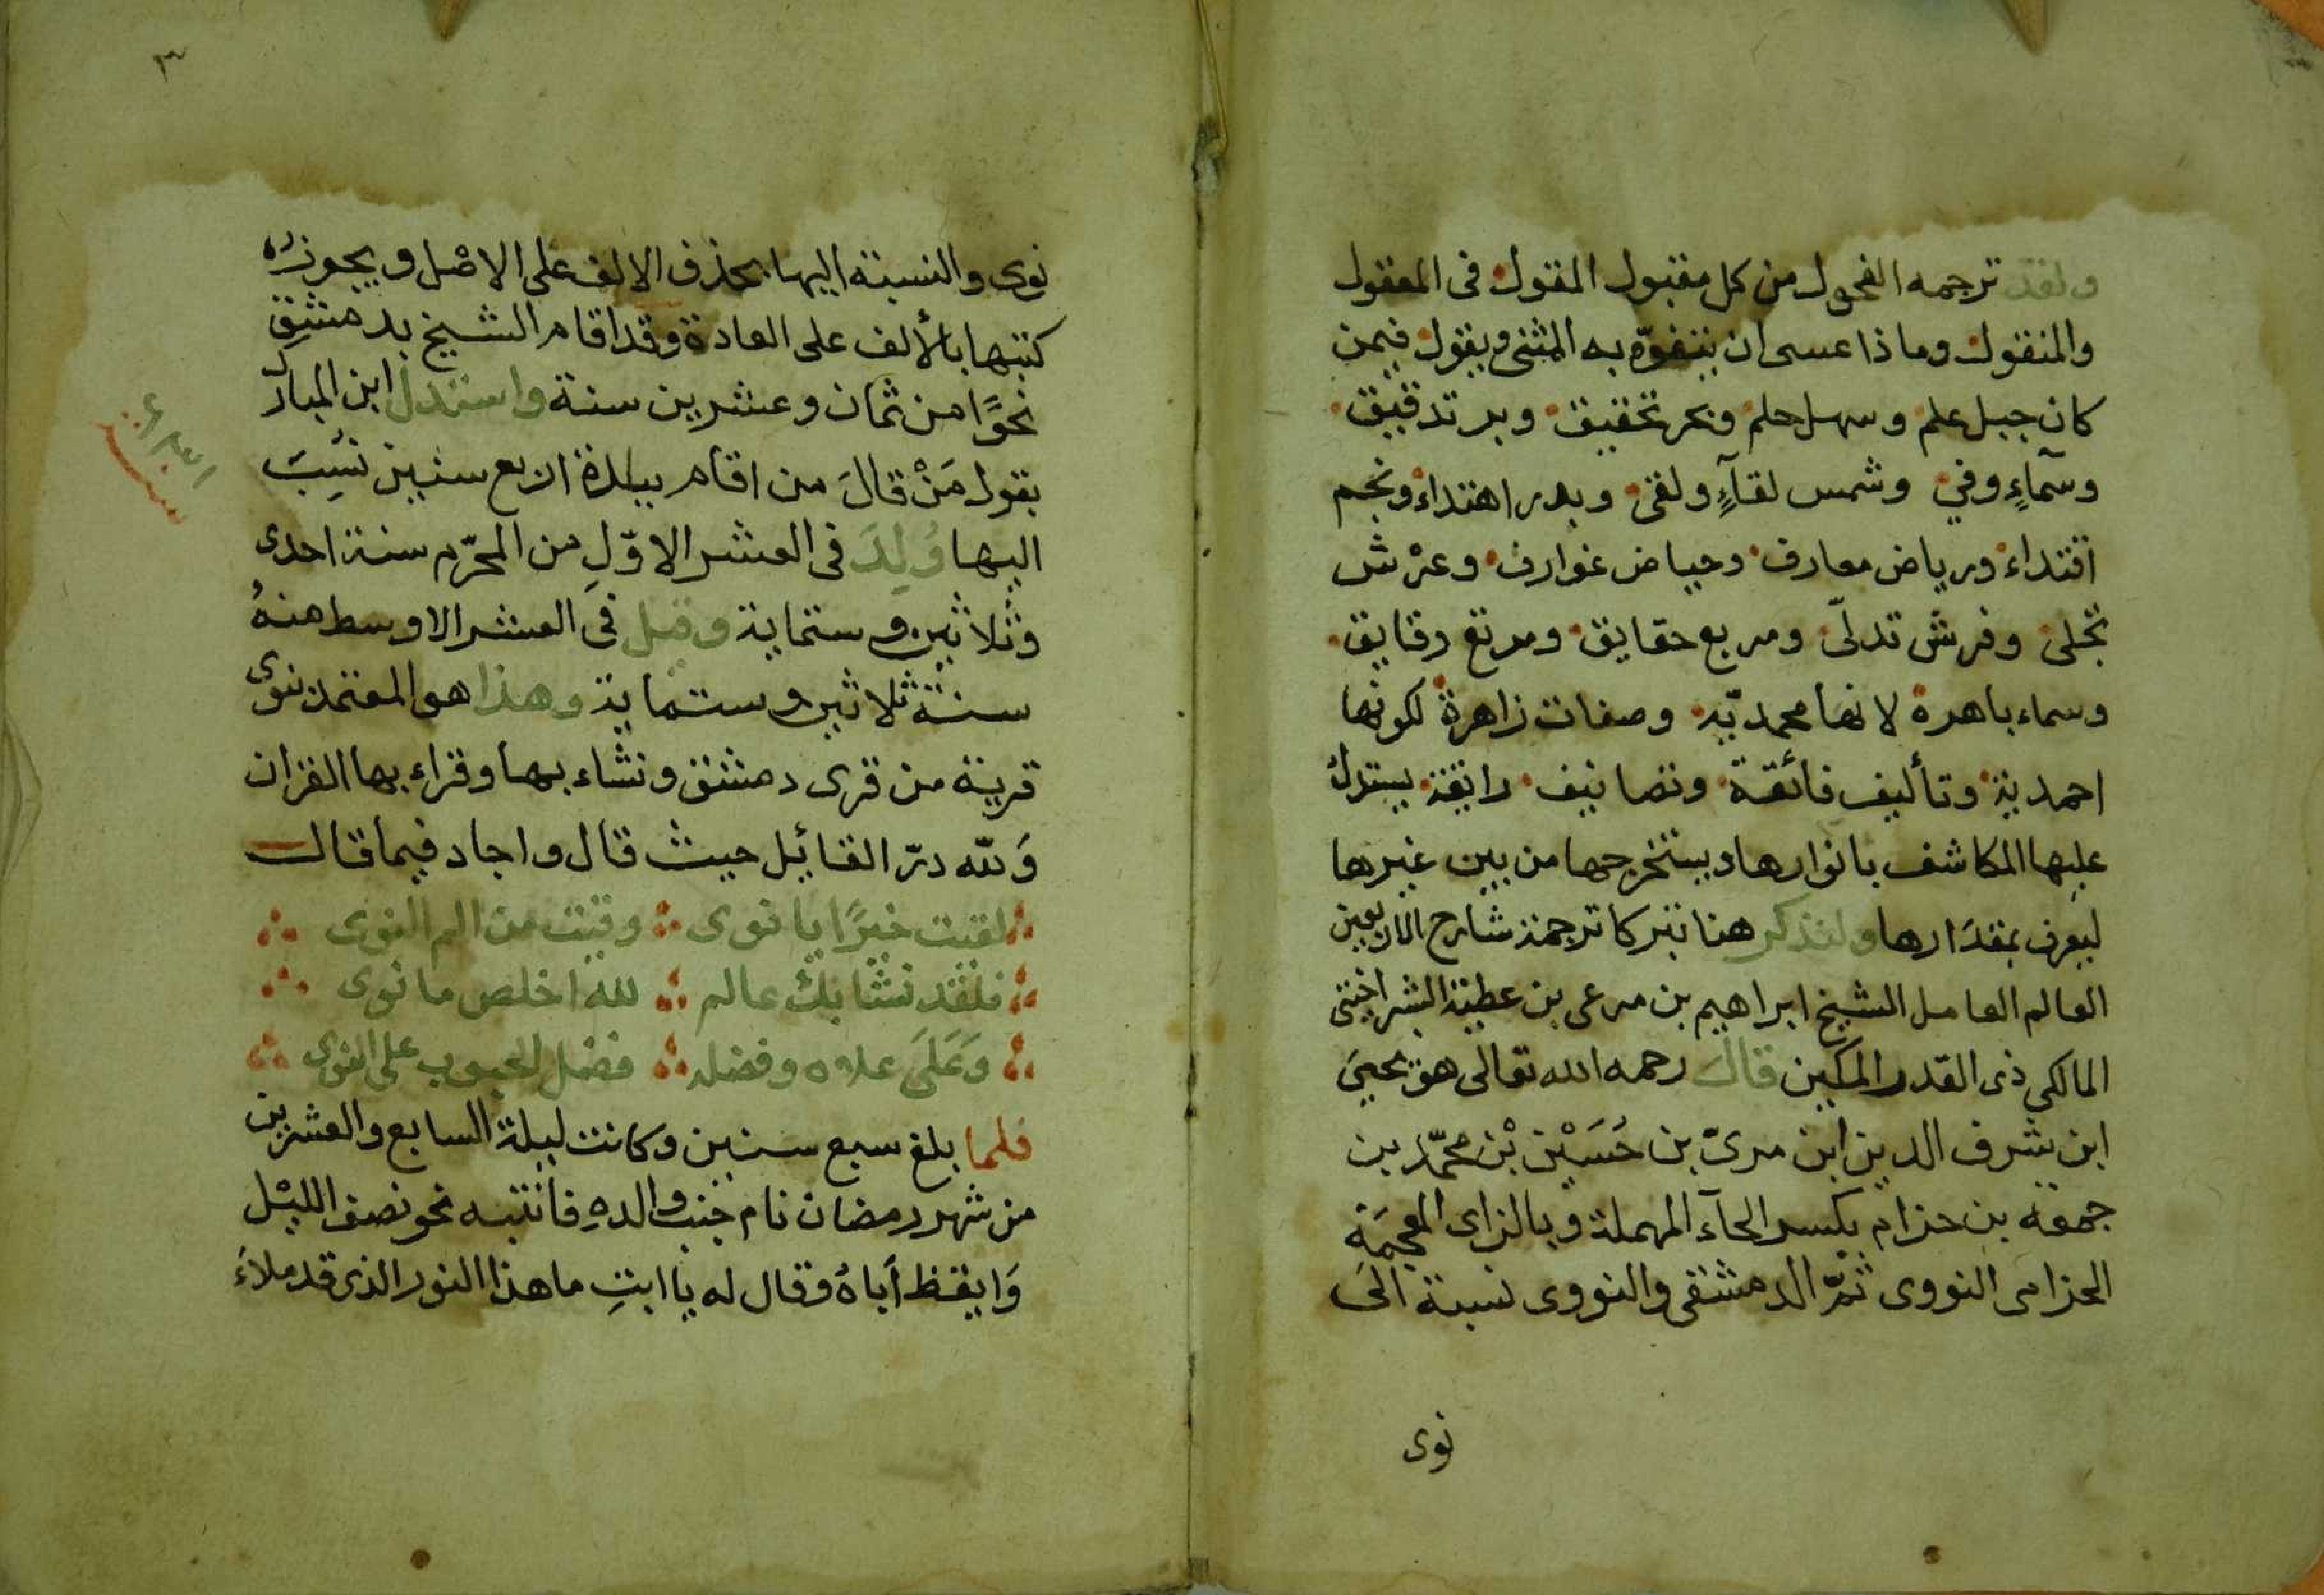 ولقد ترجمه الفحول من كل مقبول المقول في المعقول
والمنقول وماذا عسى ان يتفوّه به المثنى ويقول فيمن
كان جبل علم وسهل حلم وبحر تحقيق وبر تدقيق
وسمآءٍ وفي وشمس لقآءٍ ولقى وبدر اهتداء ونجم
اقتداء ورياض معارف وحياض غوارف وعرْش
تجلى وفرش تدلّى ومربع حقايق ومرتع رقايق
وسماء باهرة لانها محمديّة وصفات زاهرة لكونها
احمدية وتأليف فائقة وتصانيف رايقة يستدل
عليها المكاشف بانوارها ويستخرجها من بين غيرها
ليعرف بمقدارها ولنذكر هنا تبركا ترجمة شارح الاربعين
العالم العامل الشيخ ابراهيم بن مرعى بن عطية الشبراخيتى
المالكي ذى القدر المكين قال رحمه الله تعالى هو يحيىَ
ابن شرف الدين ابن مرىّ بن حُسَيْن بْن محمّد بن
جمعة بن حزام بكسر الحآء المهملة وبالزاى المعجمَة
الحزامى النووى ثمّ الدمشقى والنووى نسبة الىَ
نوى
٣
نوى والنسبة اليها بحذف الالف على الاصْل ويجوز
كتبها بالألف على العادة وقد اقام الشيخ بدمشقِ
نحوًا من ثمان وعشرين سنة واستدل ابن المبارك
بقول مَنْ قالَ من اقام ببلدة اربع سنين نُسِبَ
اليها وُلِدَ فى العشر الاوّلِ من المحرّم سنة احدى
وثلاثين وستماية وقيل فى العشر الاوسط منهُ
سنة ثلاثين وستماية وهذا هو المعتمد بنوى
قرية من قرى دمشق ونشاء بها وقراء بها القران
وَلله درّ القائيل حيث قال واجاد فيما قال
لقيت خيرًا يا نوى وقيت من الم النوى
فلقد نشا بك عالم لله اخلص ما نوى
وَعَلَى علاه وفضله فضل الحبوب على النوى
فلما بلغ سبع سنين وكانت ليلة السابع والعشرين
من شهر رمضان نام جنب والدهِ فانتبه نحو نصف الليْل
وَايقظ أباهُ وقال له يا ابتِ ما هذا النور الذى قد ملاءَ